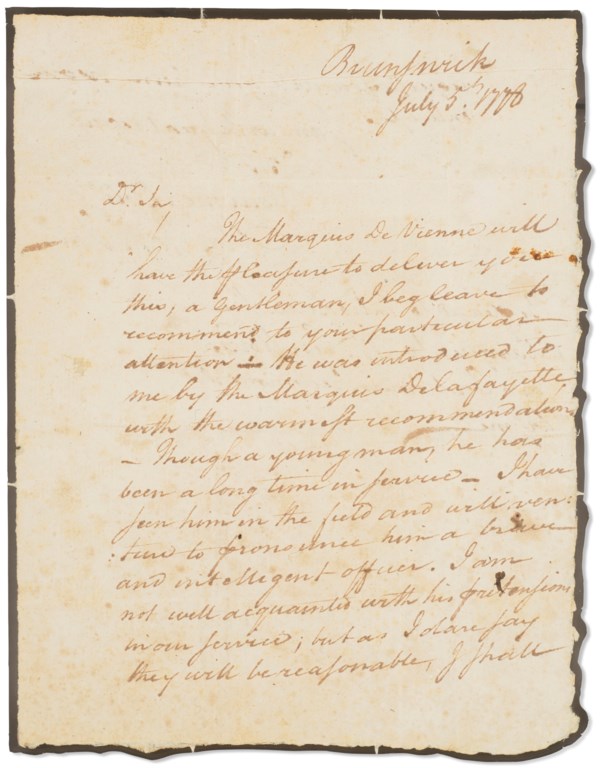 Brunswick
July 5th. 1778
Dr. Sir
The Marquis De Vienne will
have the pleasure to deliver you
this, a Gentleman, I beg leave to
recommend to your particular
attention — He was introduced to
me by the Marquis Delafayette
with the warmest recommendations
— Though a young man, he has
been a long time in service — I have
seen him in the field and will ven:
:ture to pronounce him a brave
and intelligent officer. I am
not well acquainted with his pretensions
in our service; but as I dare say
they will be reasonable, I shall